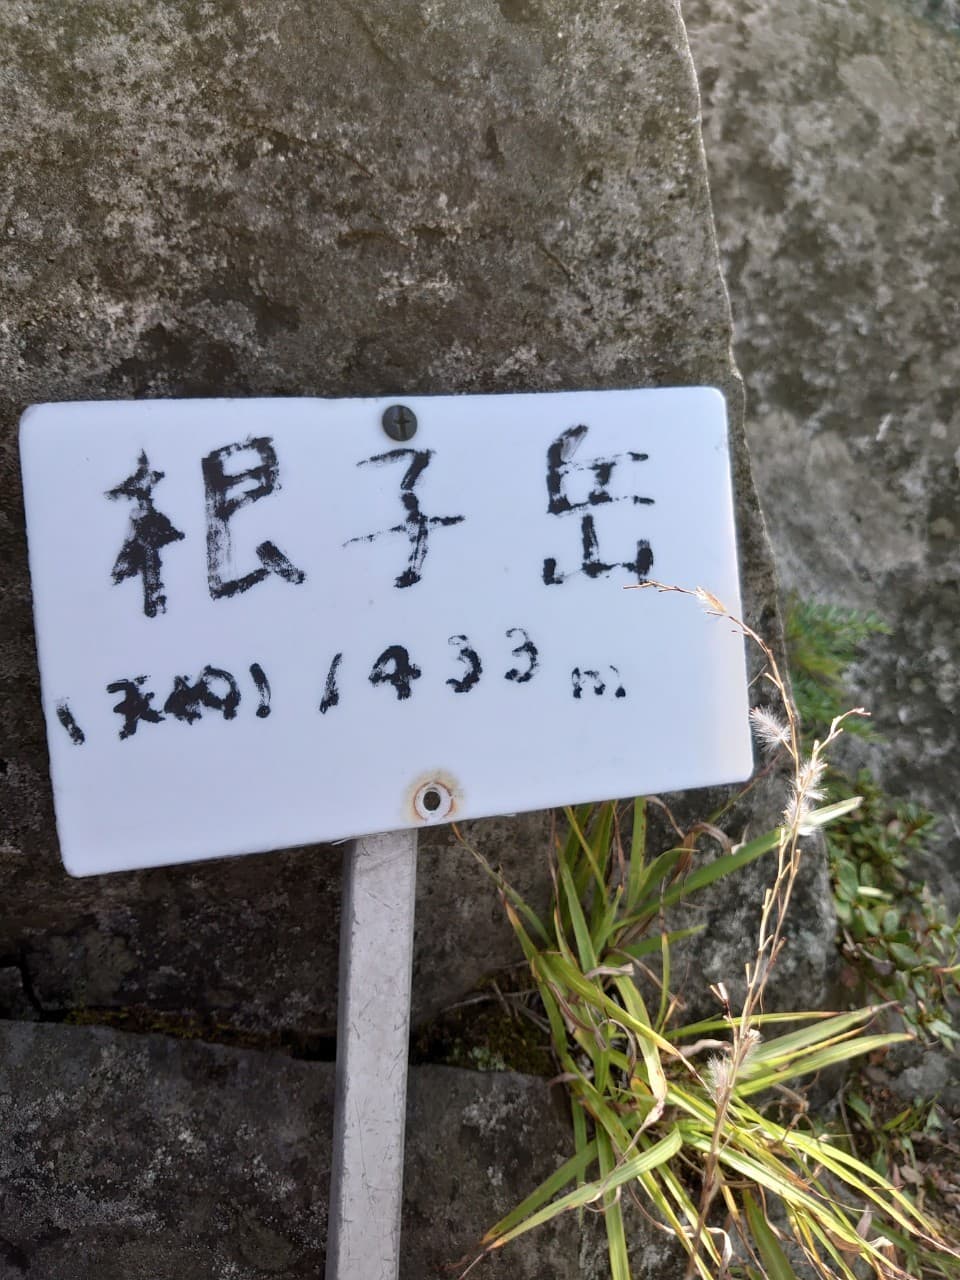 根子岳
(天狗) 1433m